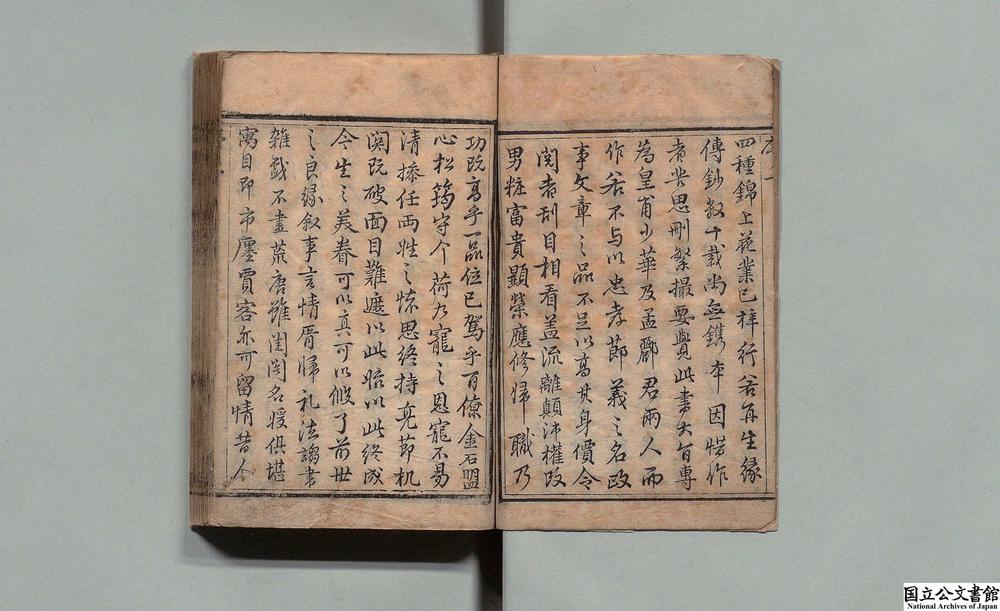 序
四種錦上花業已梓行若再生緣
傳鈔数十載尚無鐫本因惜作
者苦思刪繁撮要覺此書大旨專
為皇甫少華及孟酈君兩人而
作若不与以忠孝節義之名政
事文章之品不足以高其身價令
閱者刮目相看盖流離顛沛權改
男粧富貴顯榮應修歸職乃
功既高乎一品位已駕乎百僚金石盟
心松筠守介荷九寵之恩寵不易
清操任兩姓之思終持亮節机
関既破面目難遮以此始以此終成
今生之美眷可以真可以假了前世
之良緣叙事言情厝歸礼法謅書
雜戲不盡荒唐雖閨閣名媛俱堪
寓目即市廛賈客亦可留情昔人
国立公文書館
National Archives of Japan